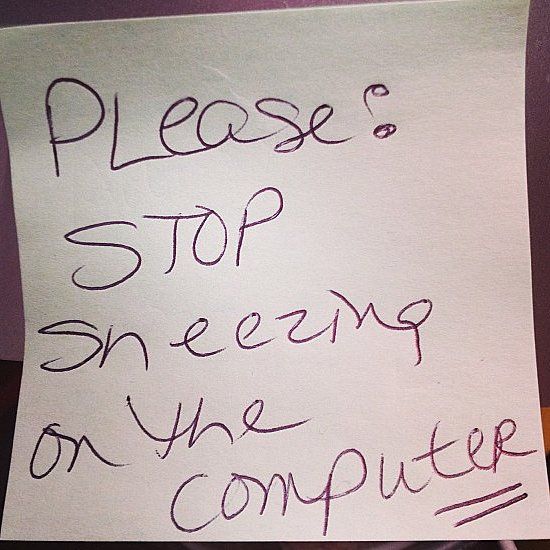 PLease:
STOP
sneezing
on the
computeR